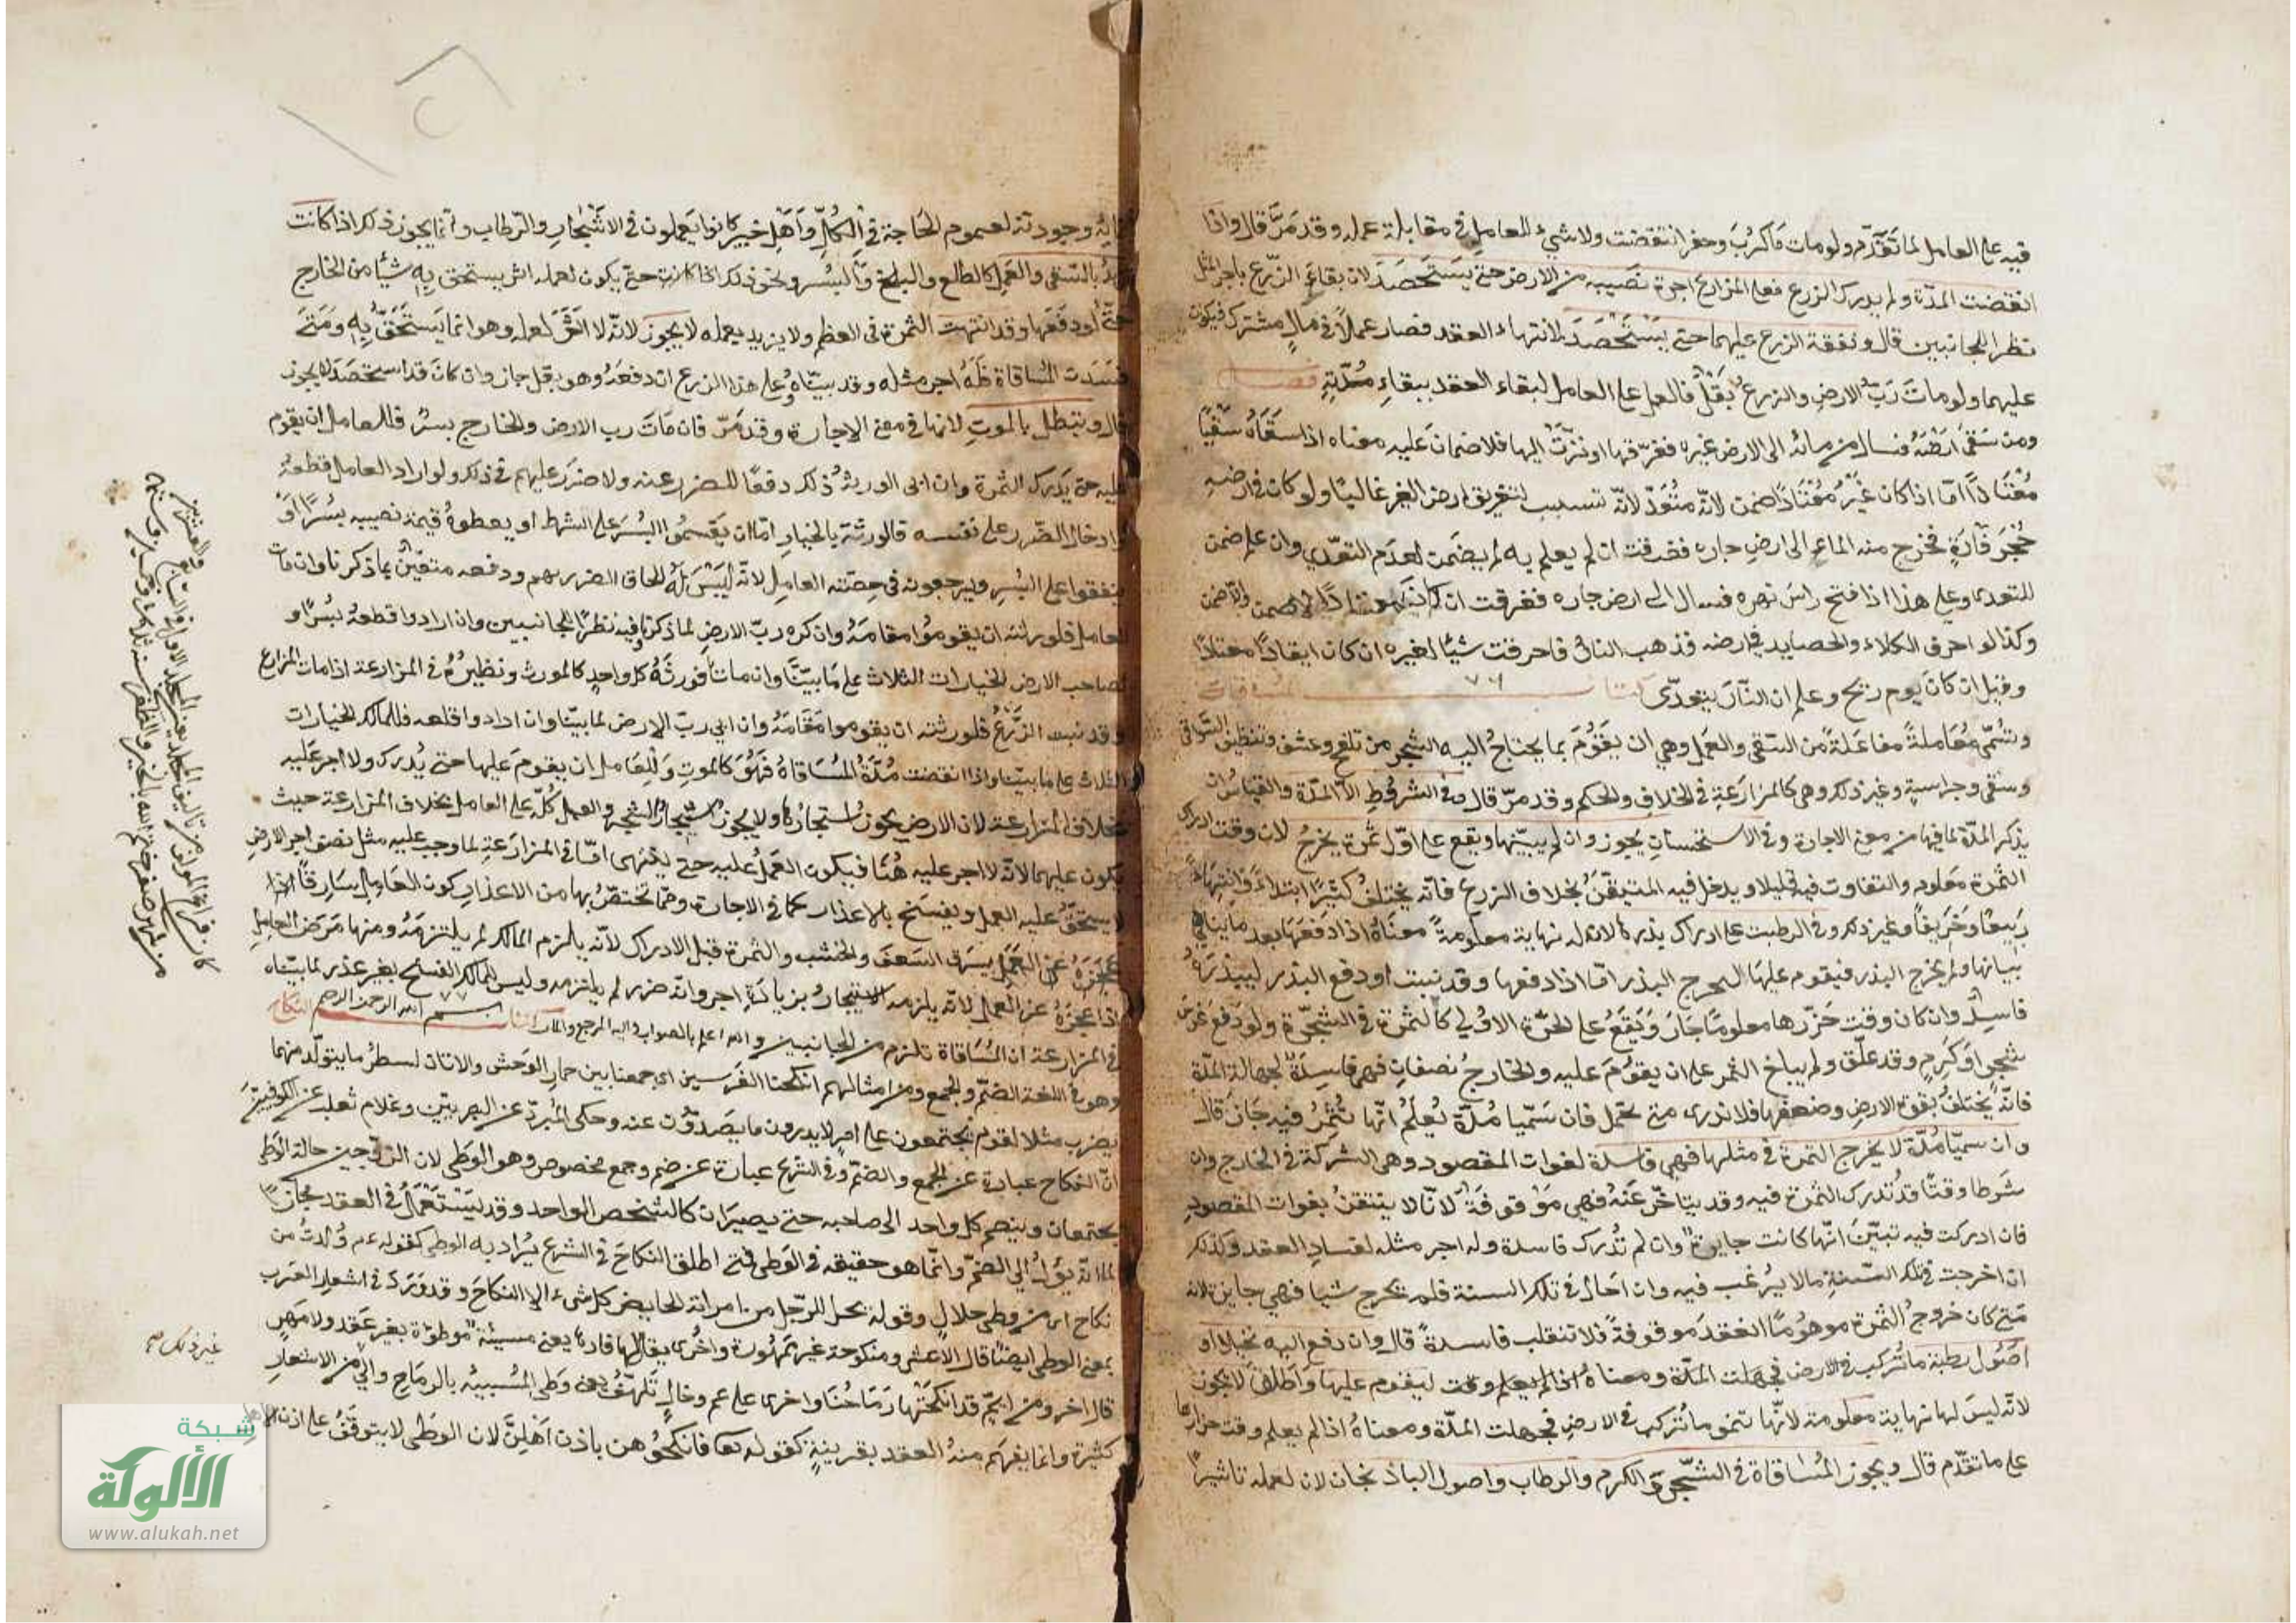 فيه على العامل لما تقدم ولو مات ما كرب وحفر انتقضت ولا شيء للعامل في مقابلة عمله وقد مر قال واذا
انقضت المدة ولم يدرك الزرع فعلى المزارع اجرة نصيبه من الارض حتى يستحصد لان بقاء الزرع باجر المثل
نظرا للجانبين قال ونفقة الزرع عليهما حتى يستحصد لانتهاء العقد فصار عملا في مال مشترك فيكون
عليهما ولو مات رب الارض والزرع بقل فالعمل على العامل لبقاء العقد ببقاء مدته فصل
ومن سقى ارضه فسال من مائه الى الارض غيره فغرقها او نزت اليها فلا ضمان عليه معناه اذا سقاه سقيا
معتادا اما اذا كان غير معتاد ضمن لانه متعد لانه تسبب لتغريق ارض الغير غالبا ولو كان في ارضه
حجر فارة فخرج منه الماء الى ارض جاره فغرقت ان لم يعلم به لم يضمن لعدم التعدى وان علم ضمن
للتعدى وعلى هذا اذا فتح راس نهره فسال الى ارض جاره فغرقت ان كان معتادا لا يضمن والا ضمن
وكذا لو احرق الكلاء والحصايد في ارضه فذهب النار فاحرقت شيا لغيره ان كان ايقادا معتادا
وقيل ان كان يوم ريح وعلم ان النار يتعدى كتاب المساقاة ٧٦
وتسمى معاملة مفاعلة من السقى والعمل وهي ان يقوم بما يحتاج اليه الشجر من تلقيح وعشق وتنظيف السواقى
وسقى وحراسة وغير ذلك وهي كالمزارعة في الخلاف والحكم وقد مر قال وفي الشروط الا المدة والقياس ان
يذكر المدة لما فيها من معنى الاجارة وفي الاستحسان يجوز وان لم يبينها ويقع على اول ثمرة يخرج لان وقت ادراك
الثمرة معلوم والتفاوت فيه قليل ويدخل فيه المتيقن بخلاف الزرع فانه يختلف كثيرا ابتداء وانتهاء
ربيعا وخريفا وغير ذلك وفي الرطبة على ادراك بذرها لان له نهاية معلومة معناه اذا دفعها بعد ما تناهى
بياتها ولم يخرج البذر فيقوم عليها ليخرج البذر اما اذا دفعها وقد نبتت او دفع البذر ليبذره
فاسد وان كان وقت جزرها معلوما جاز ويقع على الجزة الاولى كالثمرة في الشجرة ولو دفع غرس
شجر او كرم وقد علق ولم يبلغ الثمر على ان يقوم عليه والخارج نصفان فهي فاسدة لجهالة المدة
فانه يختلف بقوة الارض وضعفها فلا ندرى متى تحمل فان سميا مدة يعلم انها تثمر فيه جاز قال
وان سميا مدة لا يخرج الثمرة في مثلها فهي فاسدة لفوات المقصود وهي الشركة في الخارج وان
شرطا وقتا قد تدرك الثمرة فيه وقد يتاخر عنه فهي موقوفة لانا لا نتيقن بفوات المقصود
فان ادركت فيه تبين انها كانت جايزة وان لم تدرك فاسدة وله اجر مثله لفساد العقد وكذلك
ان اخرجت في تلك السنة ما لا يرغب فيه وان احال في تلك السنة فلم يخرج شيا فهي جايزة لانه
متى كان خروج الثمرة موهوما العقد موقوفة فلا تنقلب فاسدة قال وان دفع اليه نخيلا او
اصول رطبة ما تركب في الارض فجهلت المدة ومعناه اذا لم يعلم وقت ليقوم عليها واطلق لا يجوز
لانه ليس لها نهاية معلومة لانها تنمو ما تركت في الارض فجهلت المدة ومعناه اذا لم يعلم وقت جزازها
على ما تقدم قال ويجوز المساقاة في الشجر والكرم والرطاب واصول الباذنجان لان لعمله تاثيرا
وجودته لعموم الحاجة في الكل واهل خيبر كانوا يعملون في الاشجار والرطاب وانما يجوز ذلك اذا كانت
بالسقى والعمل كالطلع والبلح والبسر ونحو ذلك اذا كانت حتى يكون لعمله اثر يستحق به شيئا من الخارج
حتى لو دفعها وقد انتهت الثمرة في العظم ولا يزيد بعمله لا يجوز لانه لا اثر لعمله وهو انما يستحق به ومتى
فسدت المساقاة فله اجر مثله وقد بيناه وعلى هذا الزرع ان دفعه وهو بقل جاز وان كان قد استحصد لا يجوز
قال وتبطل بالموت لانها في معنى الاجارة وقد مر فان مات رب الارض والخارج بسر فللعامل ان يقوم
عليه حتى يدرك الثمرة وان ابى الورثة ذلك دفعا للضرر عنه ولا ضرر عليهم في ذلك ولو اراد العامل قطعه
وادخال الضرر على نفسه فالورثة بالخيار اما ان يقسموا البسر على الشرط او يعطوه قيمة نصيبه بسرا او
ينفقوا على البسر ويرجعونه في حصة العامل لانه ليس له الحاق الضرر بهم ودفعه متعين بما ذكرنا وان مات
العامل فلورثته ان يقوموا مقامه وان كره رب الارض لما ذكرنا وفيه نظرا للجانبين وان ارادوا قطعه بسرا و
لصاحب الارض الخيارات الثلاث على ما بينا وان مات فورثة كل واحد كالمورث ونظيره في المزارعة اذا مات المزارع
وقد نبت الزرع فلورثته ان يقوموا مقامه وان ابى رب الارض لما بينا وان ارادوا قلعه فللمالك الخيارات
الثلاث على ما بينا واذا انقضت مدة المساقاة فهو كالموت وللعامل ان يقوم عليها حتى يدرك ولا اجر عليه
بخلاف المزارعة لان الارض يجوز استجارها ولا يجوز استيجار الشجر والعمل كله على العامل بخلاف المزارعة حيث
يكون عليهما لانه لا اجر عليه هنا فيكون العمل عليه حتى ينتهى اما في المزارعة لما وجب عليه مثل نصف اجر الارض
لا يستحق عليه العمل ويفسخ بالاعذار كما في الاجارة ومما تختص بها من الاعذار كون العامل سارقا
عجزه عن العمل يسرق السعف والخشب والثمرة قبل الادراك لانه يلزم المالك لم يلتزمه ومنها مرض العامل
اذا عجزه عن العمل لانه يلزمه الاستيجار بزيادة اجر وانه ضرر لم يلتزمه وليس للمالك الفسخ بغير عذر لما بيناه
في المزارعة ان المساقاة تلزم من الجانبين والله اعلم بالصواب واليه المرجع والمآب كتاب ٧٧ بسم الله الرحمن الرحيم النكاح
وهو في اللغة الضم والجمع ومن امثالهم انكحنا الفرسين اى جمعنا بين حمار الوحش والاتان لسطر ما يتولد منهما
يضرب مثلا لقوم يجتمعون على امر لا يدرون ما يصدون عنه وحكى المبرد عن البصريين وغلام ثعلب عن الكوفيين
ان النكاح عبارة عن الجمع والضم وفي الشرع عبارة عن ضم وجمع مخصوص وهو الوطى لان الزوجين حالة الوطى
يجتمعان وينضم كل واحد الى صاحبه حتى يصيران كالشخص الواحد وقد يستعمل في العقد مجازا
لما انه يؤل الى الضم وانما هو حقيقة في الوطى فمتى اطلق النكاح في الشرع يراد به الوطى كقوله عم ولدت من
نكاح اى من وطى حلال وقوله يحل للرجل من امراته الحايض كل شيء الا النكاح وقد ورد في اشعار العرب
بمعنى الوطى ايضا قال الاعشى ومنكوحة غير ممهورة واخرى يقال لها فادها يعنى مسبية موطؤة بغير عقد ولا مهر
قال اخر ومن ايم قد انكحتها رماحنا واخرى على عم وخال تلهف يعنى وطى المسبية بالرماح والى من الاشعار
كثيرة وانما يفهم منه العقد بقرينة كقوله تعا فانكحوهن باذن اهلهن لان الوطى لا يتوقف على اذن الاهل
غير ذلك صح
شبكة
الألوكة
www.alukah.net